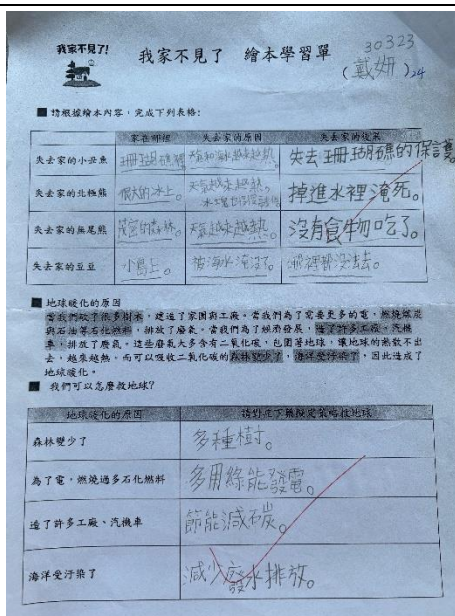 我家不見了!
我家不見了 繪本學習單
30323
(戴妍)24
■ 請根據繪本內容，完成下列表格:
家在哪裡 失去家的原因 失去家的後果
失去家的小丑魚 珊瑚礁裡 天氣和海水越來越熱 失去珊瑚礁的保護。
失去家的北極熊 很大的冰上。 天氣越來越熱， 掉進水裡淹死。
失去家的無尾熊 茂密的森林。 天氣越來越熱。 沒有食物吃了。
失去家的豆豆 小島上。 被海水淹沒了。 哪裡都沒法去。
■ 地球暖化的原因
當我們砍了很多樹木，建造了家園與工廠。當我們為了需要更多的電，燃燒煤炭
與石油等石化燃料，排放了廢氣。當我們為了經濟發展，造了許多工廠、汽機
車，排放了廢氣。這些廢氣大多含有二氧化碳，包圍著地球，讓地球的熱散不出
去，越來越熱。而可以吸收二氧化碳的森林變少了，海洋受汙染了，因此造成了
地球暖化。
■ 我們可以怎麼救地球?
地球暖化的原因 請對症下藥擬定策略救地球
森林變少了 多種樹。
為了電，燃燒過多石化燃料 多用綠能發電。
造了許多工廠、汽機車 節能減碳。
海洋受汙染了 減少廢水排放。